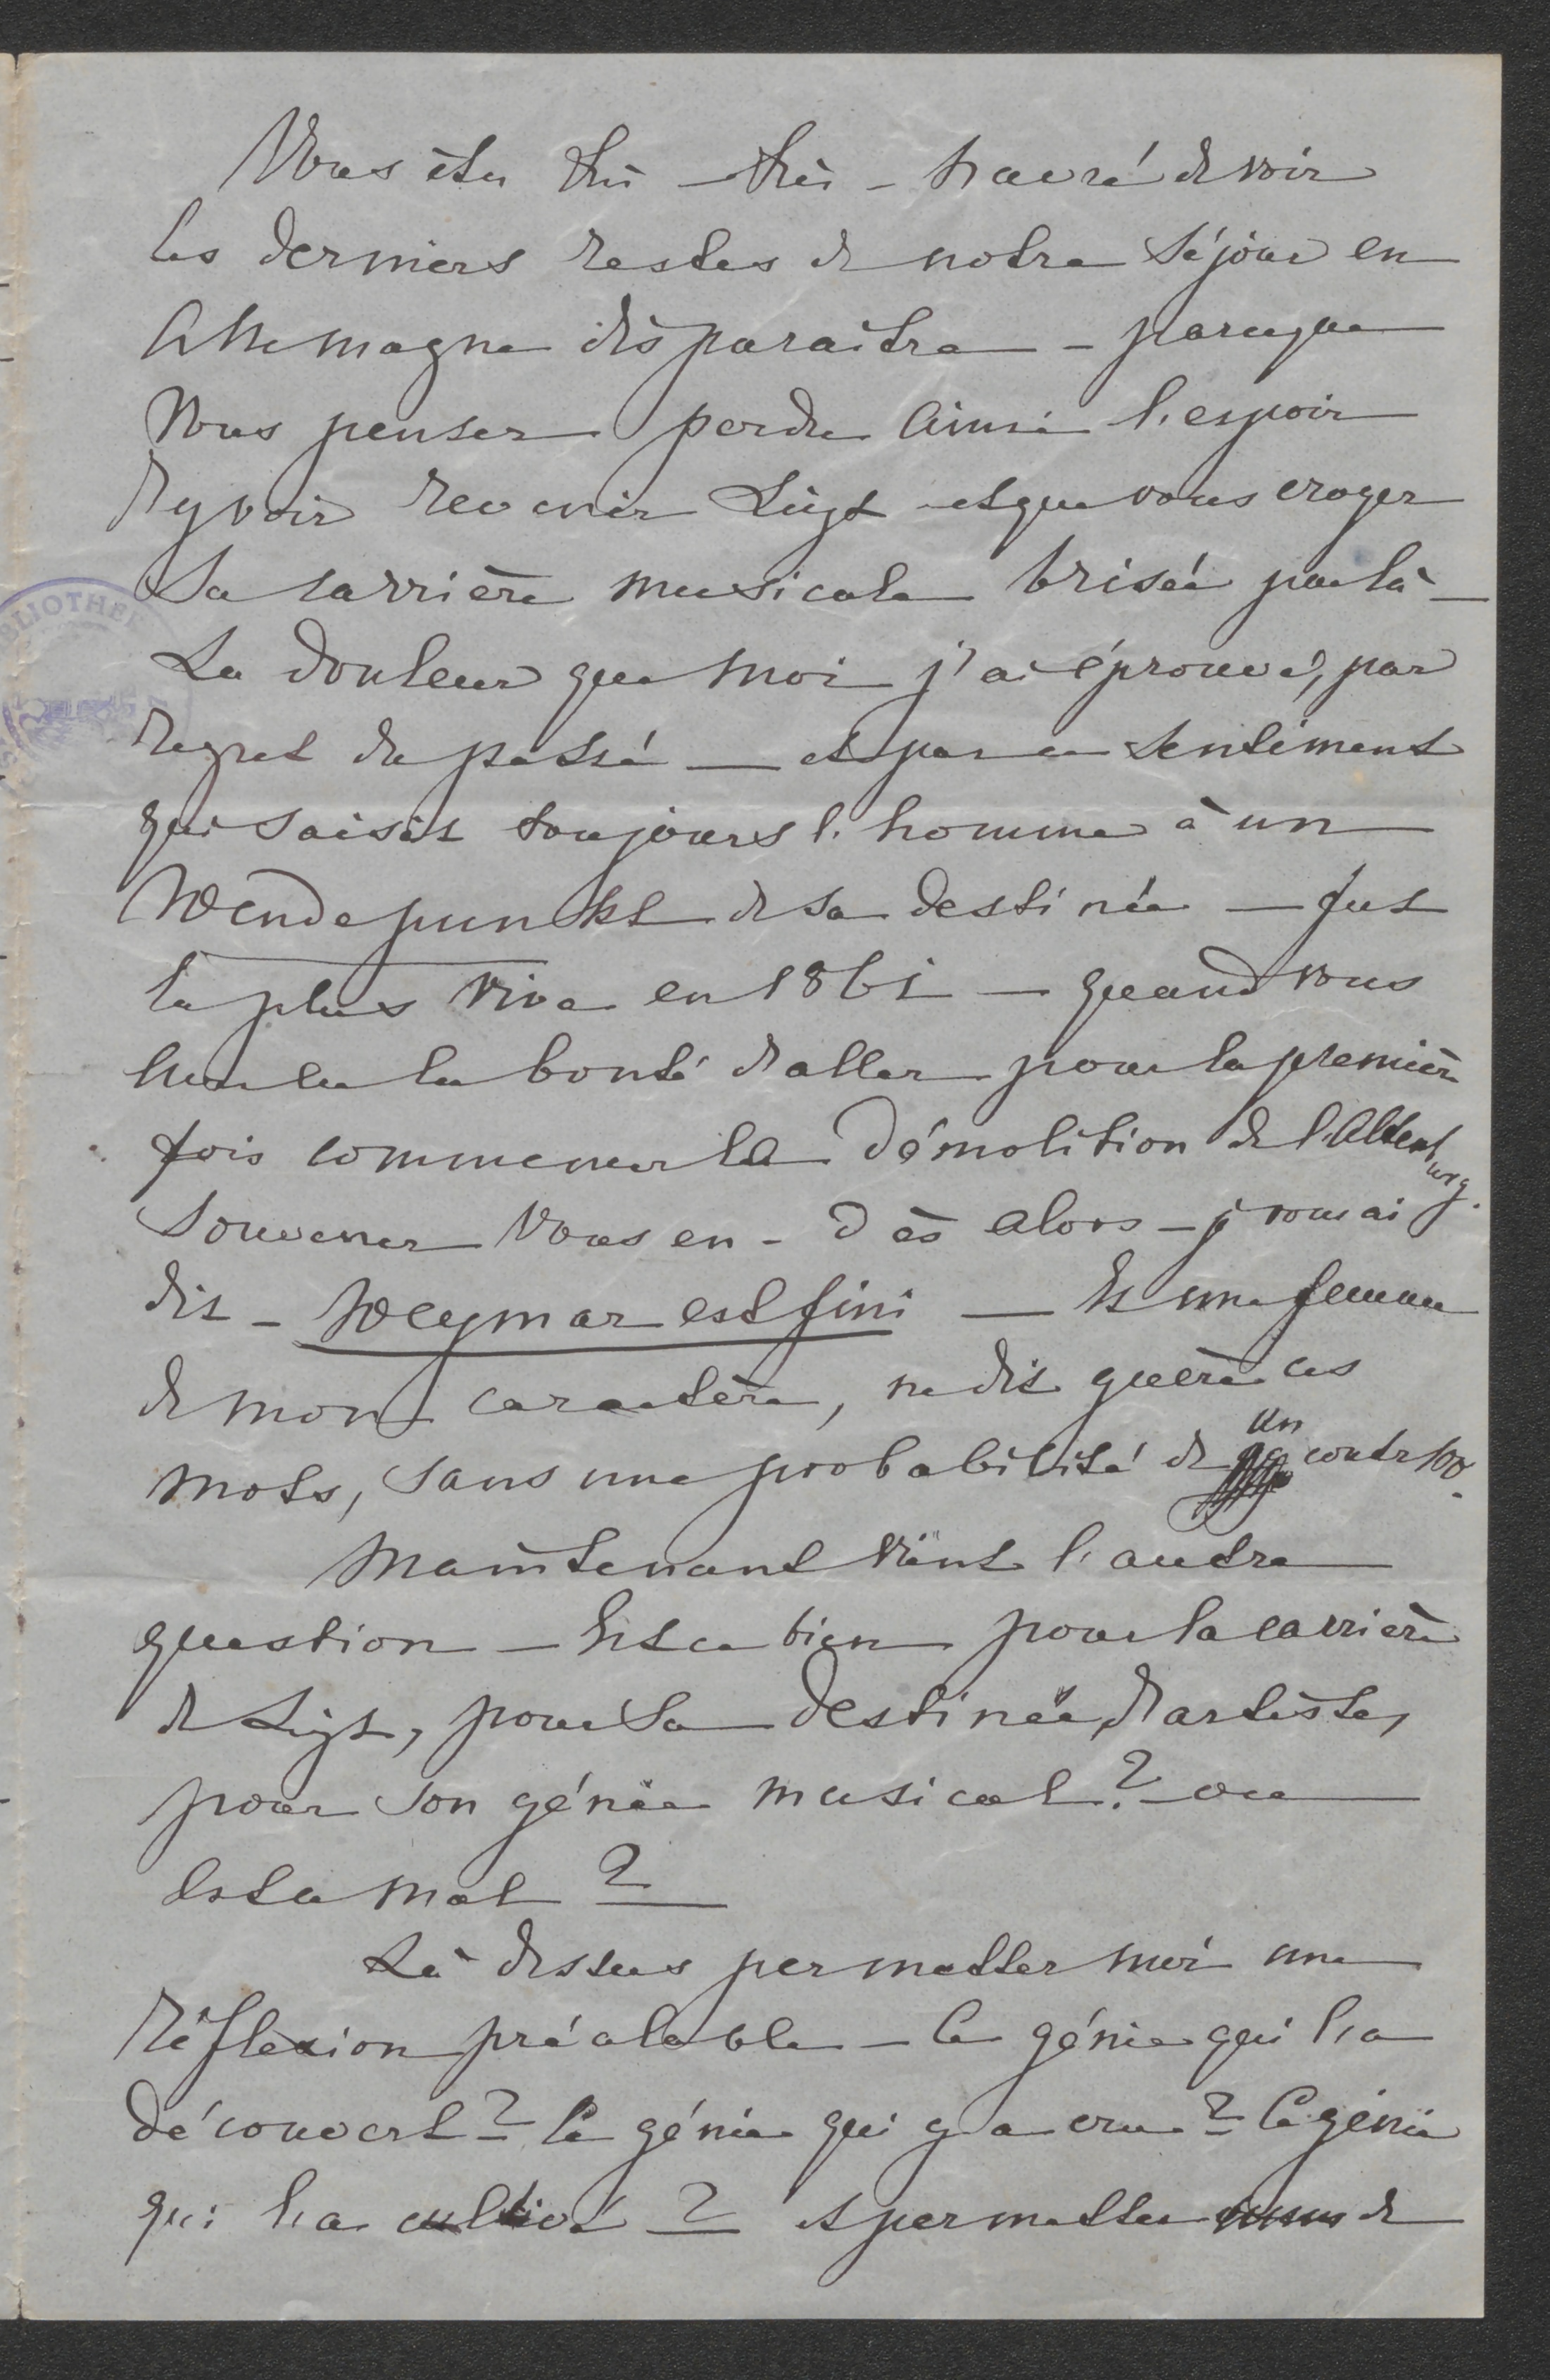 Vous êtes très – très – navré de voir
les derniers restes de notre séjour en
Allemagne disparaitre – parceque
Vous pensez perdre ainsi l'espoir
d'y voir revenir Liszt et que vous croyez
sa carrière musicale brisée par là –
La douleur que moi j'ai éprouvé, par
regret du passé — et par ce sentiment
qui saisit toujours l'homme à un
Wendepunkt de sa destinée — fut
la plus vive en 1861 — quand vous
la bonté d'aller pour la première
fois commencer la démolition de l'Altenburg.
Souvenez Vous en – dès alors – je vous ai
dit – Weymar est fini — Et une femme
de mon caractère, ne dit guère ces
mots, sans une probabilité de un contre 100.
Maintenant vient l'autre
question — Est ce bien pour la carrière
de Liszt, pour sa destinée d'artiste,
pour son génie musical? – ou
est ce mal ?
Là dessus permettez moi une
réflexion préalable – Ce génie qui l'a
découvert? – Ce génie qui y a cru? – Ce génie
qui l'a cultivé ? – et permettez de
BIBLIOTHE